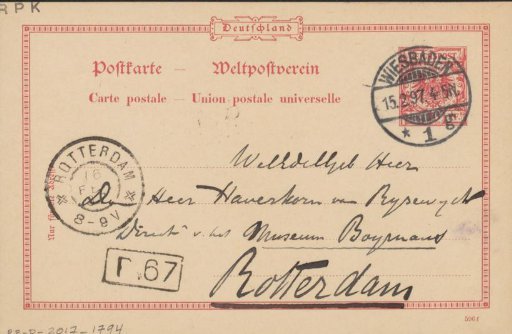 RPK
Deutschland
Postkarte — Weltpostverein
Carte postale — Union postale universelle
WIESBADEN
15.2.97.4-5N.
* 1 g
ROTTERDAM
16
FEB
8-9V
Nur für
WelEdelgeb Heer
Heer Haverkorn van Rysewyk
Direct. v. het Museum Boymans
Rotterdam
Γ.67
RP-D-2017-1794
596f